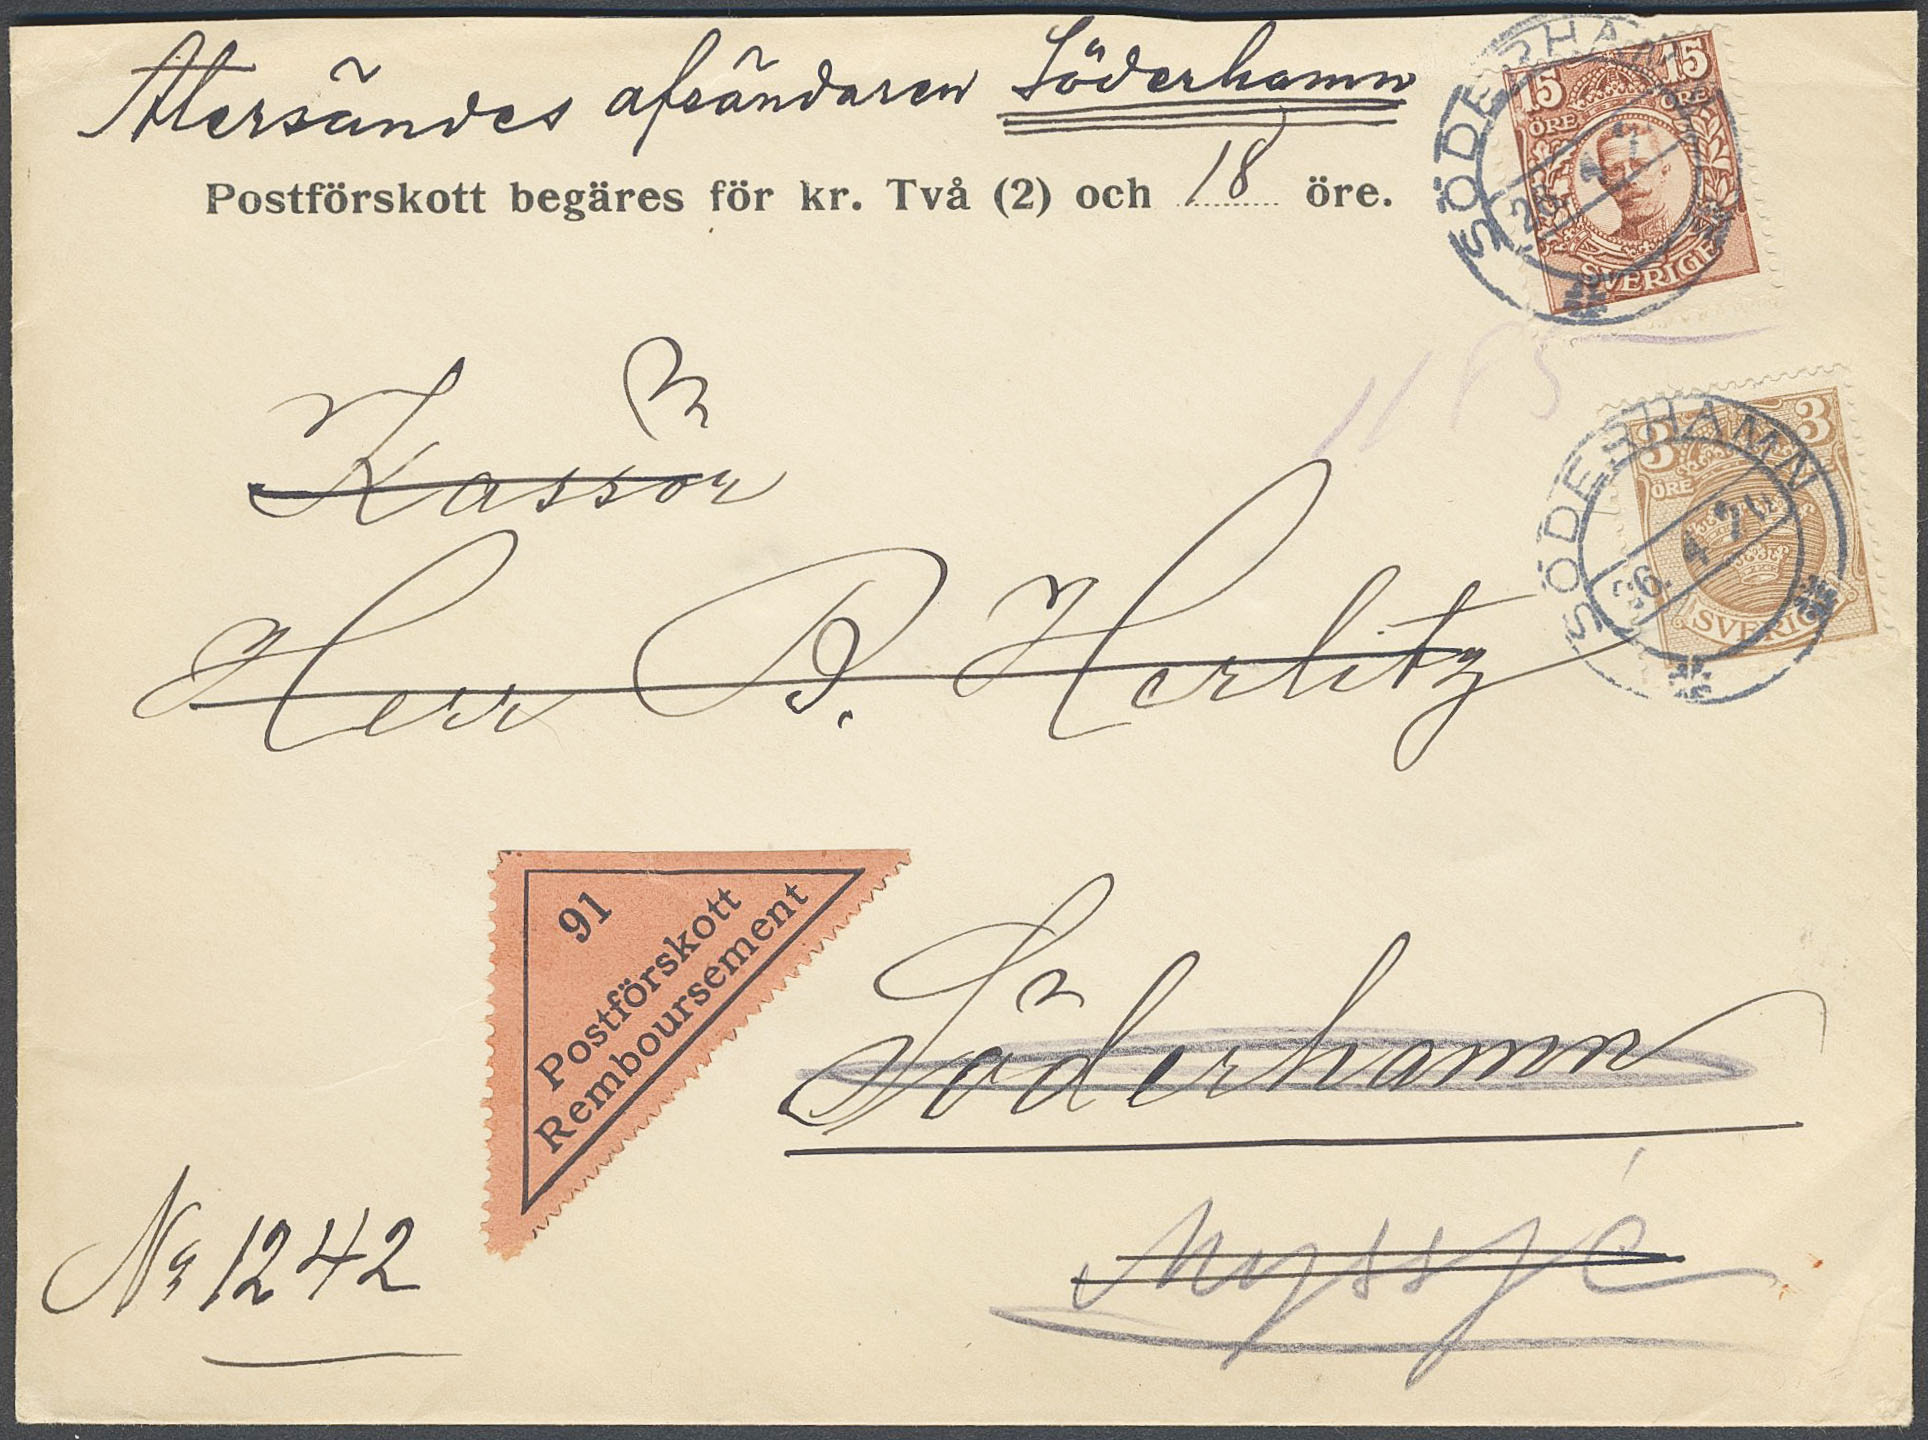 Återsändes afsändaren Söderhamn
Postförskott begäres för kr. Två (2) och 18 öre.
15 15
ÖRE ÖRE
SVERIGE
SÖDERHAMN
26. 4
Kassör
Herr P. Herlitz
3 3
ÖRE
SVERIGE
SÖDERHAMN
26. 4
91
Postförskott
Remboursement
Söderhamn
No 1242